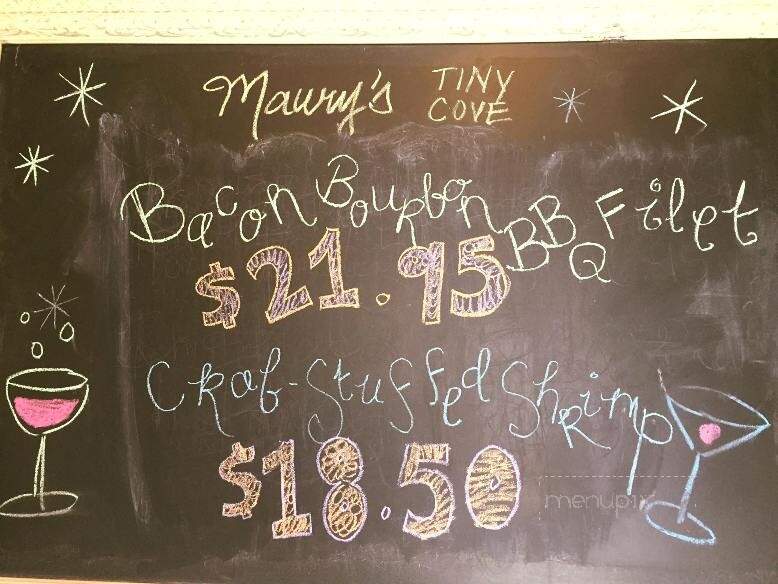 Maury's TINY COVE
Bacon Bourbon BBQ Filet
$21.95
Crab-Stuffed Shrimp
$18.50
menupix